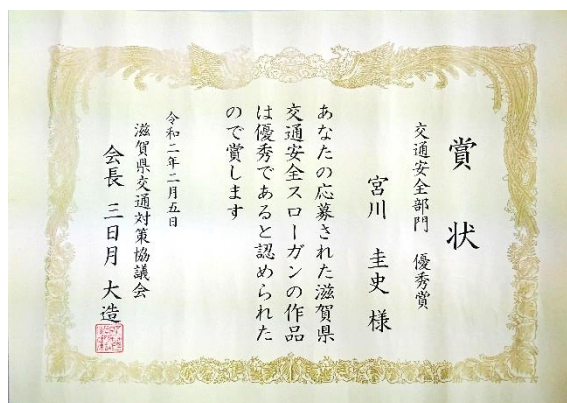 賞状
交通安全部門 優秀賞
宮川 圭史 様
あなたの応募された滋賀県
交通安全スローガンの作品
は優秀であると認められた
ので賞します
令和二年二月五日
滋賀県交通対策協議会
会長 三日月 大造